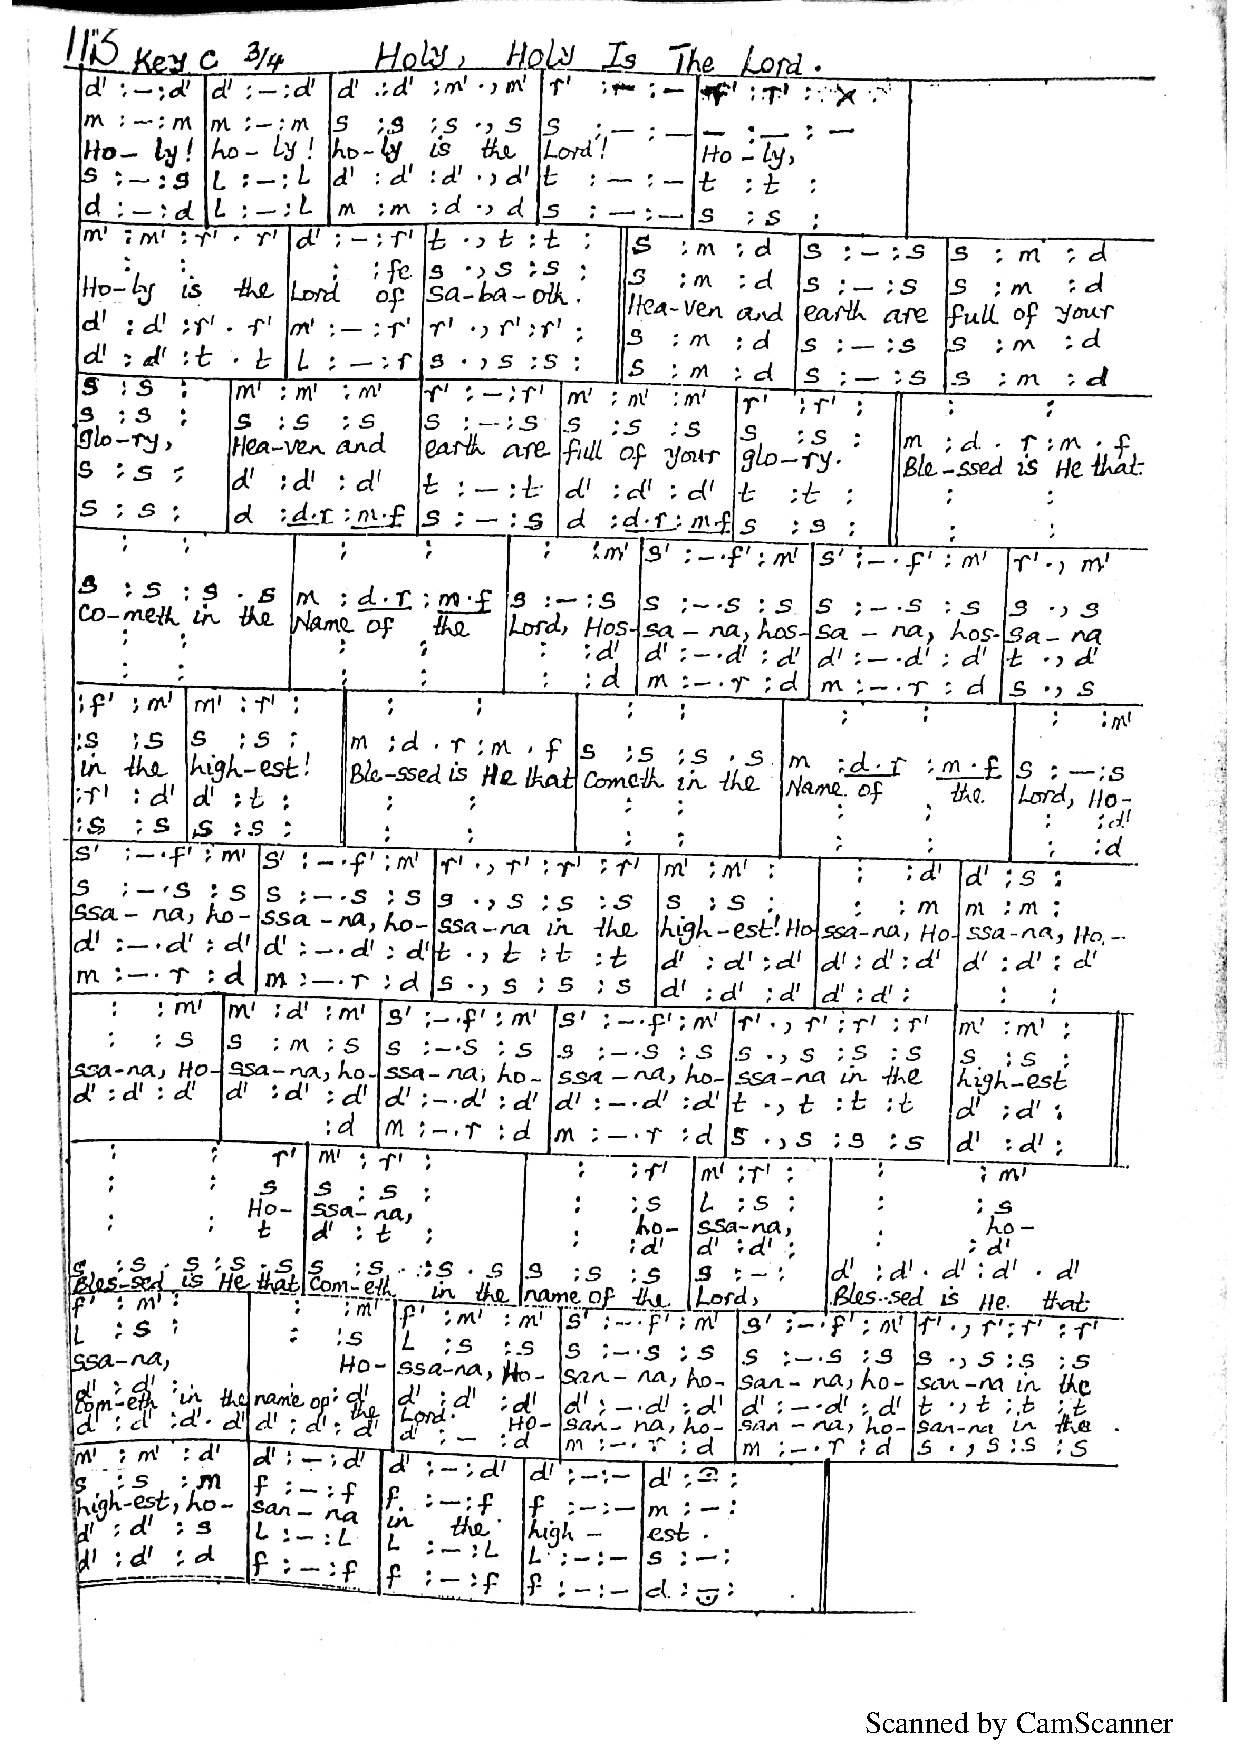 1115 Key C 3/4 Holy, Holy Is The Lord.
d' :—:d' | d' :—:d' | d' .:d' :m' ., m' | r' :—:— | f' : r' :
m :—:m | m :—:m | s :s :s ., s | s :—:— | — :— :—
Ho-ly! | ho-ly! | ho-ly is the | Lord! | Ho-ly,
s :—:s | L :—:L | d' :d' :d' ., d' | t :—:— | t :t :
d :—:d | L :—:L | m :m :d ., d | s :—:— | s :s :
m' :m' :r' . r' | d' :—:r' | t ., t :t : || s :m :d | s :—:s | s :m :d
: : | : :fe | s ., s :s : || s :m :d | s :—:s | s :m :d
Ho-ly is the | Lord of | sa-ba-oth. || Hea-ven and | earth are | full of your
d' :d' :r' . r' | m' :—:r' | r' ., r' :r' : || s :m :d | s :—:s | s :m :d
d' :d' :t . t | L :—:r | s ., s :s : || s :m :d | s :—:s | s :m :d
s :s : | m' :m' :m' | r' :—:r' | m' :m' :m' | r' :r' : || : :
s :s : | s :s :s | s :—:s | s :s :s | s :s : || m :d . r :m . f
glo-ry, | Hea-ven and | earth are | full of your | glo-ry. || Ble-ssed is He that
s :s : | d' :d' :d' | t :—:t | d' :d' :d' | t :t : || : :
s :s : | d :d.r :m.f | s :—:s | d :d.r :m.f | s :s : || : :
: : | : : | : :m' | s' :—.f' :m' | s' :—.f' :m' | r' ., m'
s :s :s . s | m :d.r :m.f | s :—:s | s :—.s :s | s :—.s :s | s ., s
Co-meth in the | Name of the | Lord, Hos- | sa-na, hos- | sa-na, hos- | sa-na
: : | : : | : :d' | d' :—.d' :d' | d' :—.d' :d' | t ., d'
: : | : : | : :d | m :—.r :d | m :—.r :d | s ., s
:f' :m' | m' :r' : || : : | : : | : : | : :m'
:s :s | s :s : || m :d . r :m . f | s :s :s . s | m :d.r :m.f | s :—:s
in the | high-est! || Ble-ssed is He that | Cometh in the | Name of the | Lord, Ho-
:r' :d' | d' :t : || : : | : : | : : | : :d'
:s :s | s :s : || : : | : : | : : | : :d
s' :—.f' :m' | s' :—.f' :m' | r' ., r' :r' :r' | m' :m' : | : :d' | d' :s :
s :—.s :s | s :—.s :s | s ., s :s :s | s :s : | : :m | m :m :
ssa-na, ho- | ssa-na, ho- | ssa-na in the | high-est! Ho | ssa-na, Ho- | ssa-na, Ho.-
d' :—.d' :d' | d' :—.d' :d' | t ., t :t :t | d' :d' :d' | d' :d' :d' | d' :d' :d'
m :—.r :d | m :—.r :d | s ., s :s :s | d' :d' :d' | d' :d' : | : :
: :m' | m' :d' :m' | s' :—.f' :m' | s' :—.f' :m' | r' ., r' :r' :r' | m' :m' :
: :s | s :m :s | s :—.s :s | s :—.s :s | s ., s :s :s | s :s :
ssa-na, Ho- | ssa-na, ho- | ssa-na, ho- | ssa-na, ho- | ssa-na in the | high-est
d' :d' :d' | d' :d' :d' | d' :—.d' :d' | d' :—.d' :d' | t ., t :t :t | d' :d' :
:d | m :—.r :d | m :—.r :d | s ., s :s :s | d' :d' :
: : r' | m' :r' : | : :r' | m' :r' : | : :m'
: : s | s :s : | : :s | L :s : | : :s
Ho- | ssa-na, | ho- | ssa-na, | ho-
: : t | d' :t : | : :d' | d' :d' : | :d'
s :s . s :s . s | s :s . :s . s | s :s :s | s :—: | d' :d' . d' :d' . d'
Bles-sed is He that | Com-eth in the | name of the | Lord, | Bles-sed is He that
f' :m' : | : :m' | f' :m' :m' | s' :—.f' :m' | s' :—.f' :m' | r' ., r' :r' :r'
L :s : | : :s | L :s :s | s :—.s :s | s :—.s :s | s ., s :s :s
ssa-na, | Ho- | ssa-na, Ho- | san-na, ho- | san-na, ho- | san-na in the
d' :d' : | : :d' | d' :d' :d' | d' :—.d' :d' | d' :—.d' :d' | t ., t :t :t
Com-eth in the | name of the | Lord. Ho- | san-na, ho- | san-na, ho- | san-na in the .
d' :d' :d' . d' | d' :d' :d' | d' :— :d | m :—.r :d | m :—.r :d | s ., s :s :s
m' :m' :d' | d' :—:d' | d' :—:d' | d' :—:— | d' : :
s :s :m | f :—:f | f :—:f | f :—:— | m :—:
high-est, ho- | san-na | in the | high- | est.
d' :d' :s | L :—:L | L :—:L | L :—:— | s :—:
d' :d' :d | f :—:f | f :—:f | f :—:— | d : :
Scanned by CamScanner